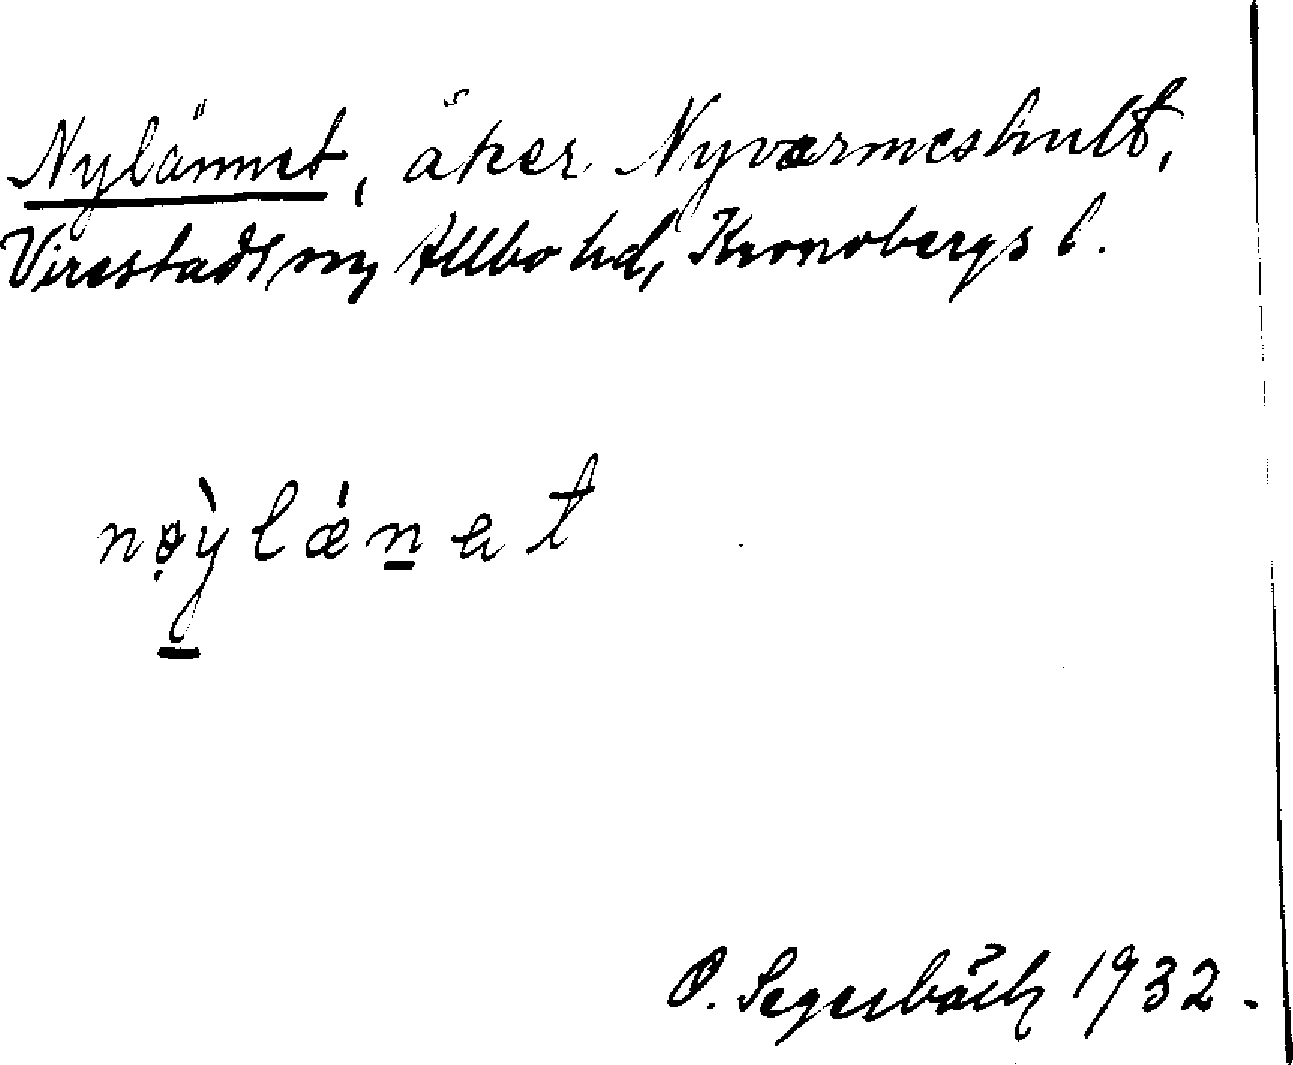 Nylännet, åker Nyvarmeshult,
Virestads sn, Allbo hd, Kronobergs l.
nø̣ỳlǽṉat
O. Segerbäck 1932.